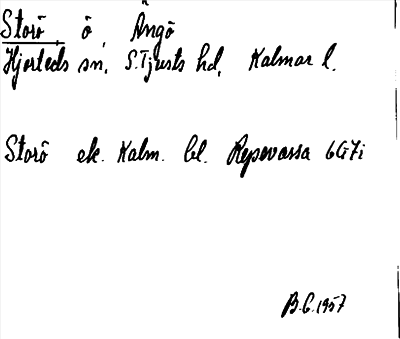 Storö, ö, Ängö
Hjorteds sn, S.Tjusts hd, Kalmar l.
Storö ek. Kalm. bl. Repovassa 6G7i
B.G.1957